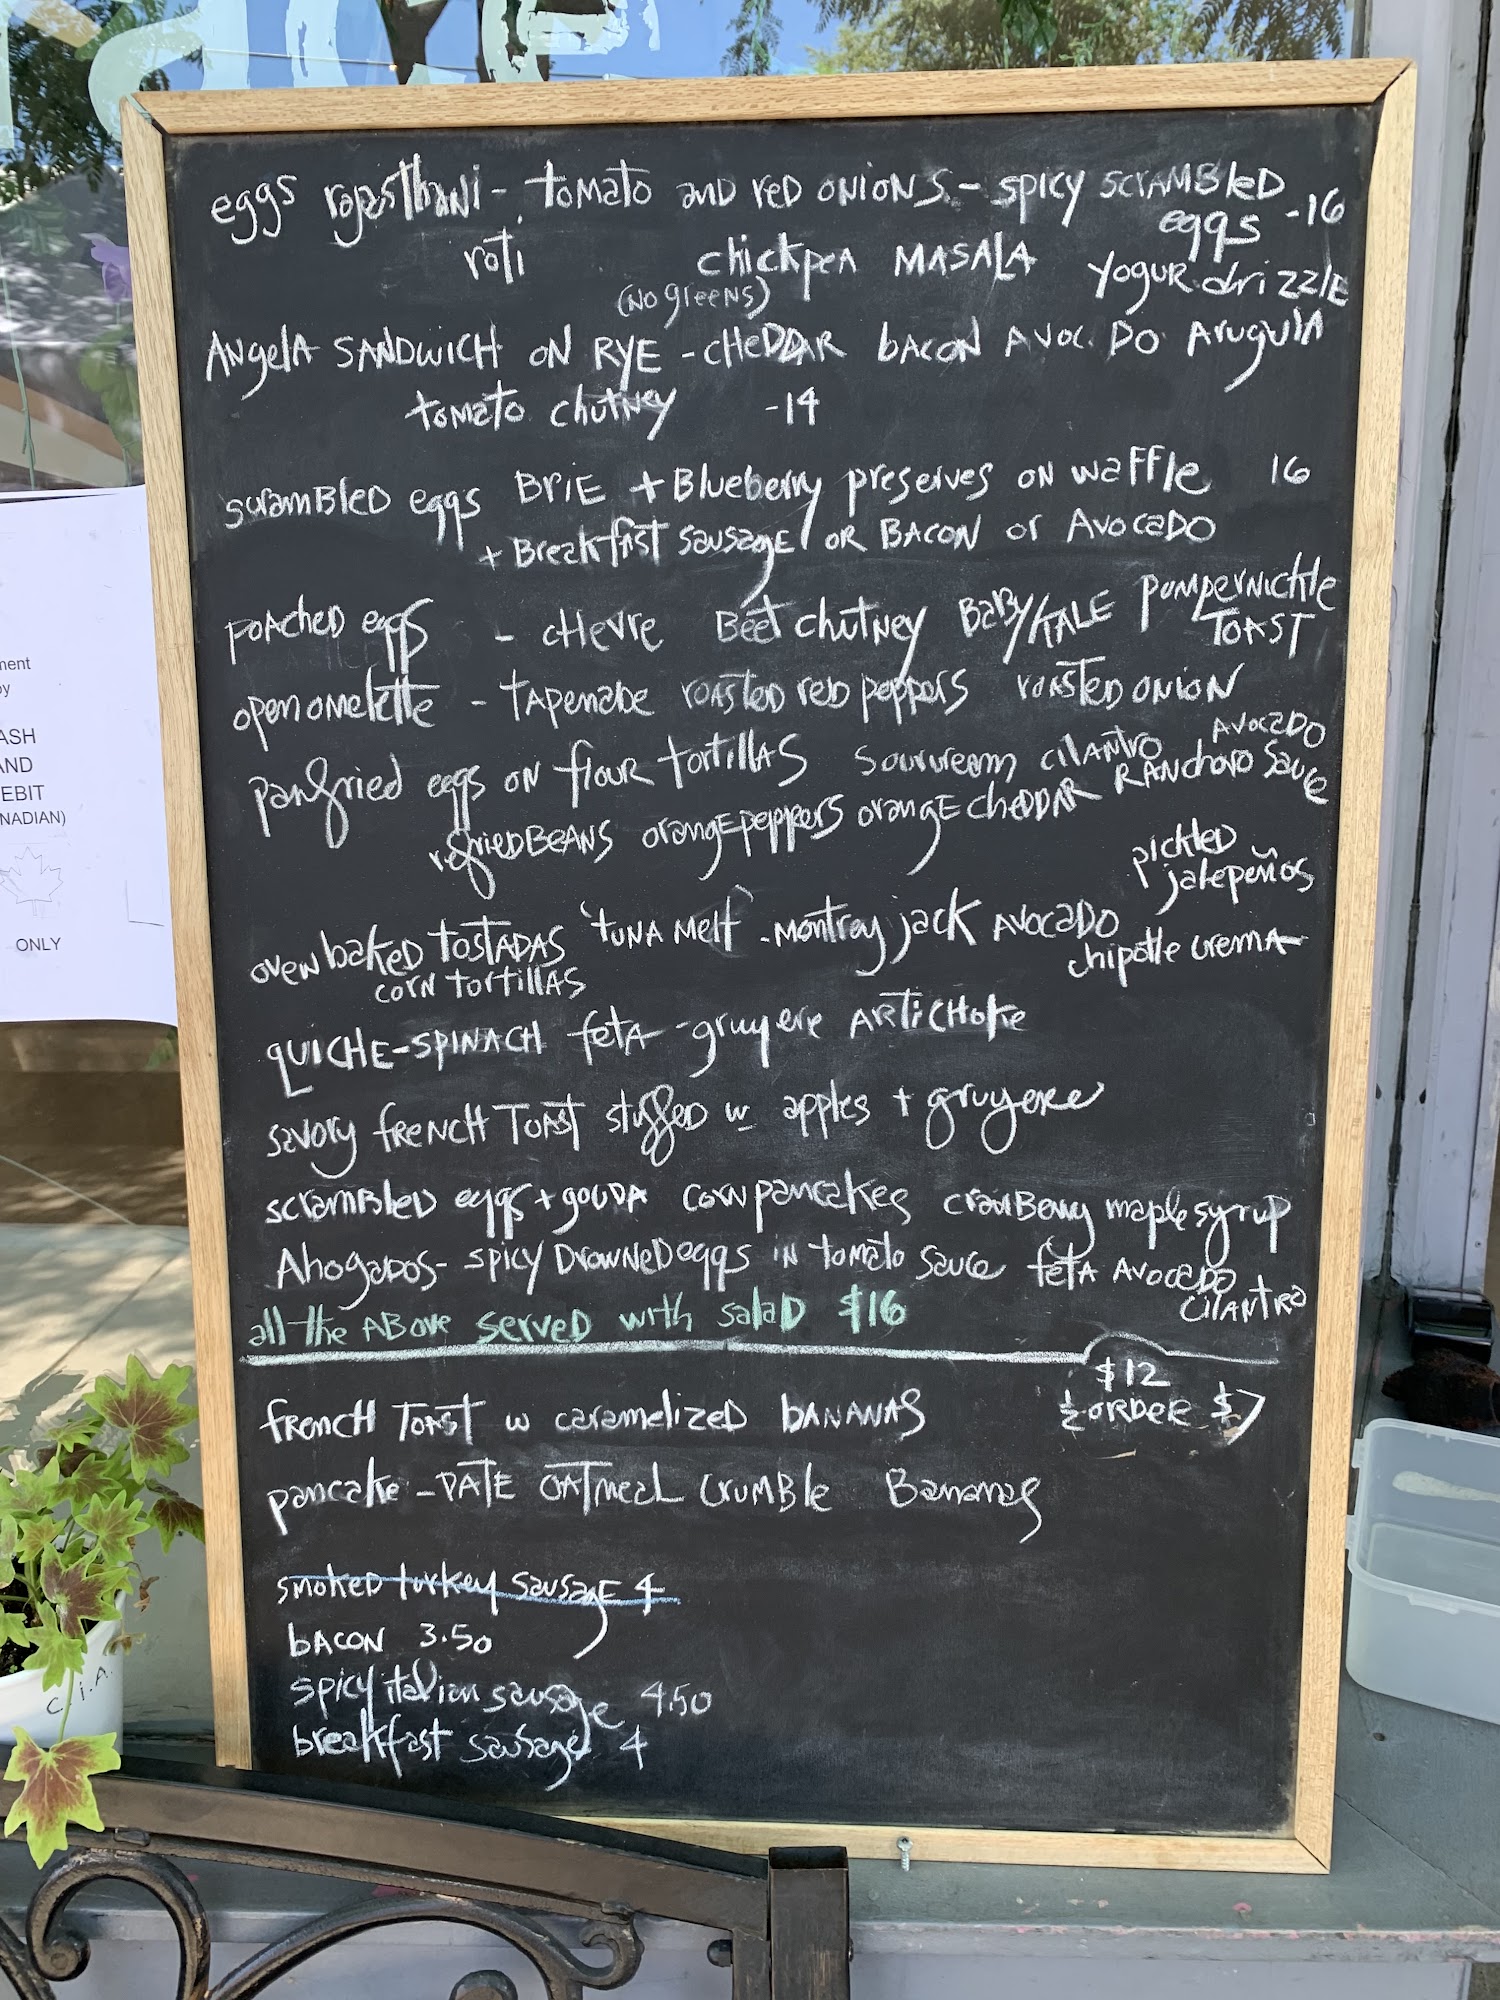 eggs rajasthani - tomato and red onions - spicy scrambled eggs -16
roti chickpea masala yogur drizzle
(no greens)
Angela sandwich on rye - cheddar bacon avoc do arugula
tomato chutney -14
scrambled eggs Brie + Blueberry preserves on waffle 16
+ Breakfast sausage or Bacon or Avocado
poached eggs - chevre Beet chutney Baby/kale pumpernickle
toast
open omelette - tapenade roasted red peppers roasted onion
panfried eggs on flour tortillas sourcream cilantro avocado
refried beans orange peppers orange cheddar ranchoro sauce
pickled
jalepeños
oven baked tostadas 'tuna melt' - montray jack avocado
corn tortillas chipotle crema
quiche - spinach feta - gruyere artichoke
savory french toast stuffed w apples + gruyere
scrambled eggs + gouda corn pancakes cranberry maple syrup
Ahogados - spicy drowned eggs in tomato sauce feta avocado
cilantro
all the above served with salad $16
$12
french toast w caramelized bananas ½ order $7
pancake - date oatmeal crumble Bananas
smoked turkey sausage 4
bacon 3.50
spicy italian sausage 4.50
breakfast sausage 4
ment
by
ASH
AND
EBIT
NADIAN)
ONLY
C.i.A.